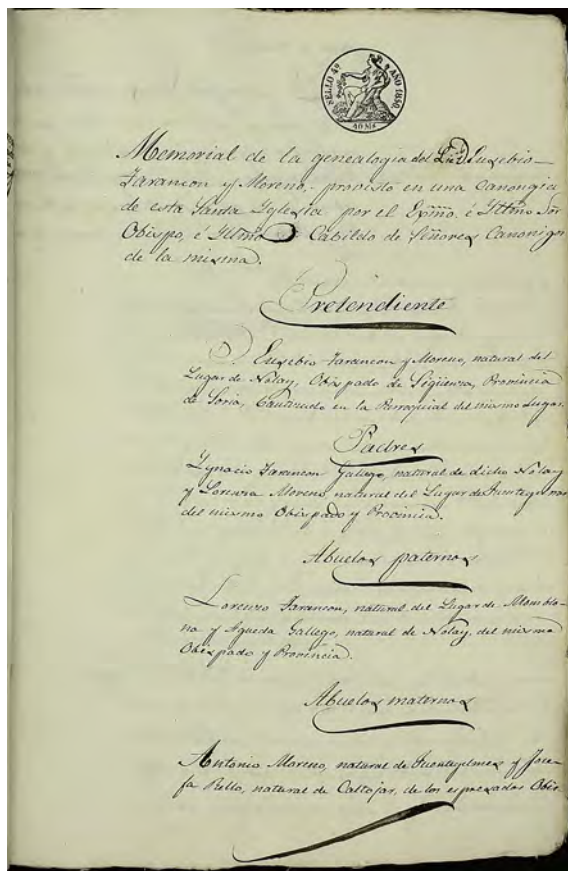 SELLO 4º AÑO 1850.
40 Ms
Memorial de la genealogia del Lcdº Eusebio
Tarancon y Moreno, provisto en una Canongia
de esta Santa Yglesia por el Exmo. é Yltmo Sor
Obispo, é Yltmo Cabildo de Señores Canonigos
de la misma.
Pretendiente
D. Eusebio Tarancon y Moreno, natural del
Lugar de Nolay, Obispado de Sigüenza, Provincia
de Soria, bautizado en la Parroquial del mismo Lugar.
Padres
Ygnacio Tarancon Gallego, natural de dicho Nolay
y Lorenza Moreno, natural del Lugar de
del mismo Obispado y Provincia.
Abuelos paternos
Lorenzo Tarancon, natural del Lugar de Momblo-
na y Agueda Gallego, natural de Nolay, del mismo
Obispado y Provincia.
Abuelos maternos
Antonio Moreno, natural de y Jose-
fa Rello, natural de Caltojar, de los espresados Obis-